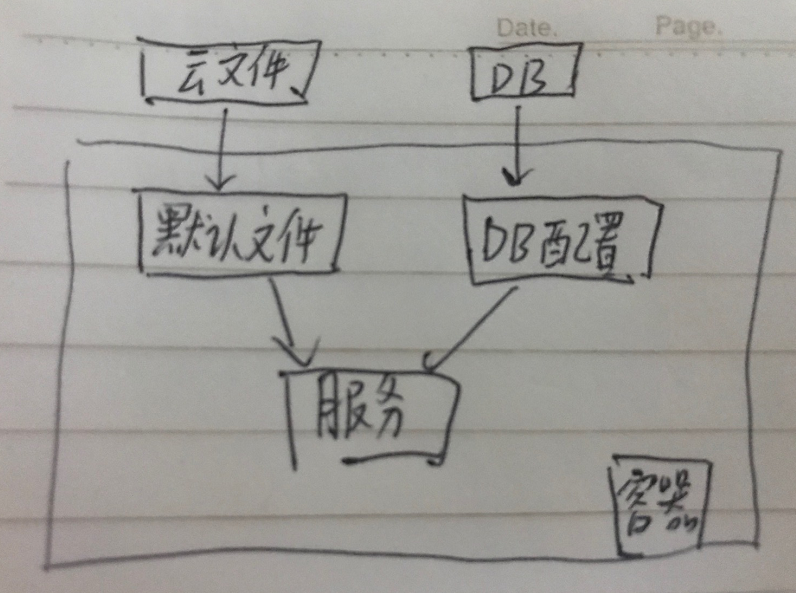 Date. Page.
云文件 DB
默认文件 DB配置
服务
容器